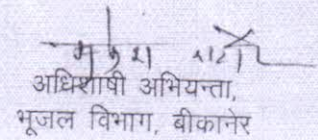 अधिशाषी अभियन्ता,
भूजल विभाग, बीकानेर